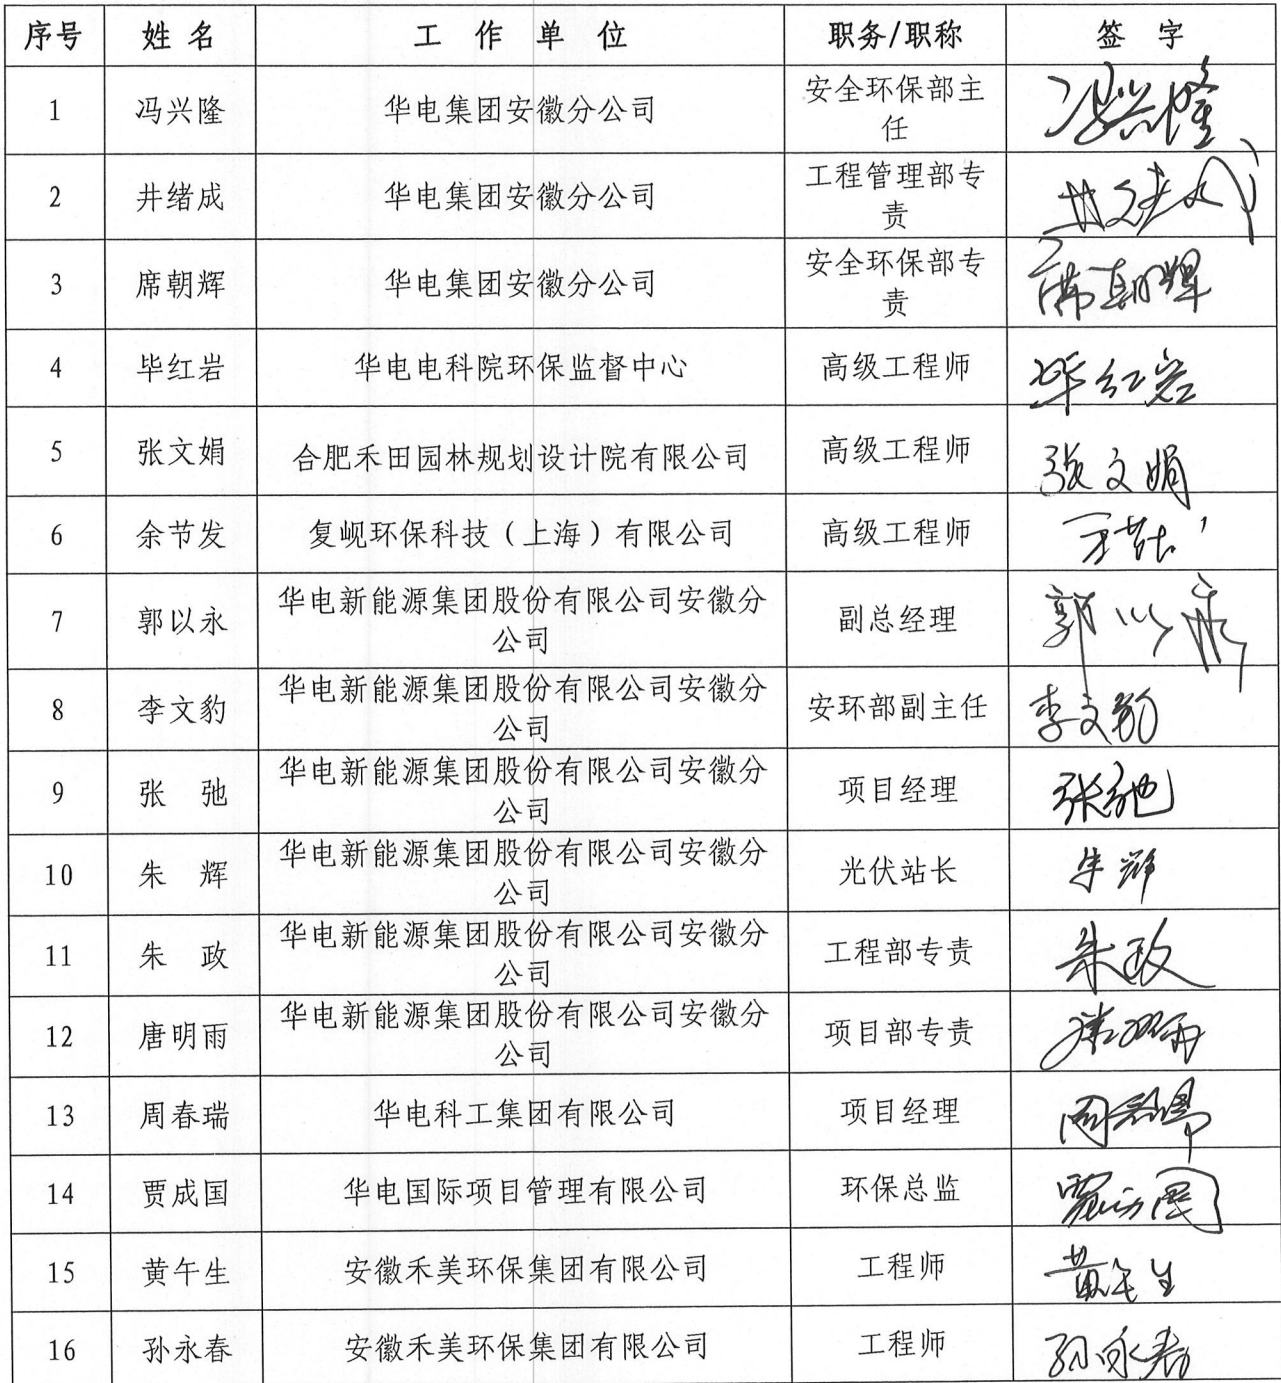 序号 姓名 工作单位 职务/职称 签字
1 冯兴隆 华电集团安徽分公司 安全环保部主
任 冯兴隆
2 井绪成 华电集团安徽分公司 工程管理部专
责
3 席朝辉 华电集团安徽分公司 安全环保部专
责 席朝辉
4 毕红岩 华电电科院环保监督中心 高级工程师 毕红岩
5 张文娟 合肥禾田园林规划设计院有限公司 高级工程师 张文娟
6 余节发 复岘环保科技（上海）有限公司 高级工程师
7 郭以永 华电新能源集团股份有限公司安徽分
公司 副总经理 郭以永
8 李文豹 华电新能源集团股份有限公司安徽分
公司 安环部副主任 李文豹
9 张 弛 华电新能源集团股份有限公司安徽分
公司 项目经理 张弛
10 朱 辉 华电新能源集团股份有限公司安徽分
公司 光伏站长 朱辉
11 朱 政 华电新能源集团股份有限公司安徽分
公司 工程部专责 朱政
12 唐明雨 华电新能源集团股份有限公司安徽分
公司 项目部专责
13 周春瑞 华电科工集团有限公司 项目经理 周春瑞
14 贾成国 华电国际项目管理有限公司 环保总监 贾成国
15 黄午生 安徽禾美环保集团有限公司 工程师 黄午生
16 孙永春 安徽禾美环保集团有限公司 工程师 孙永春